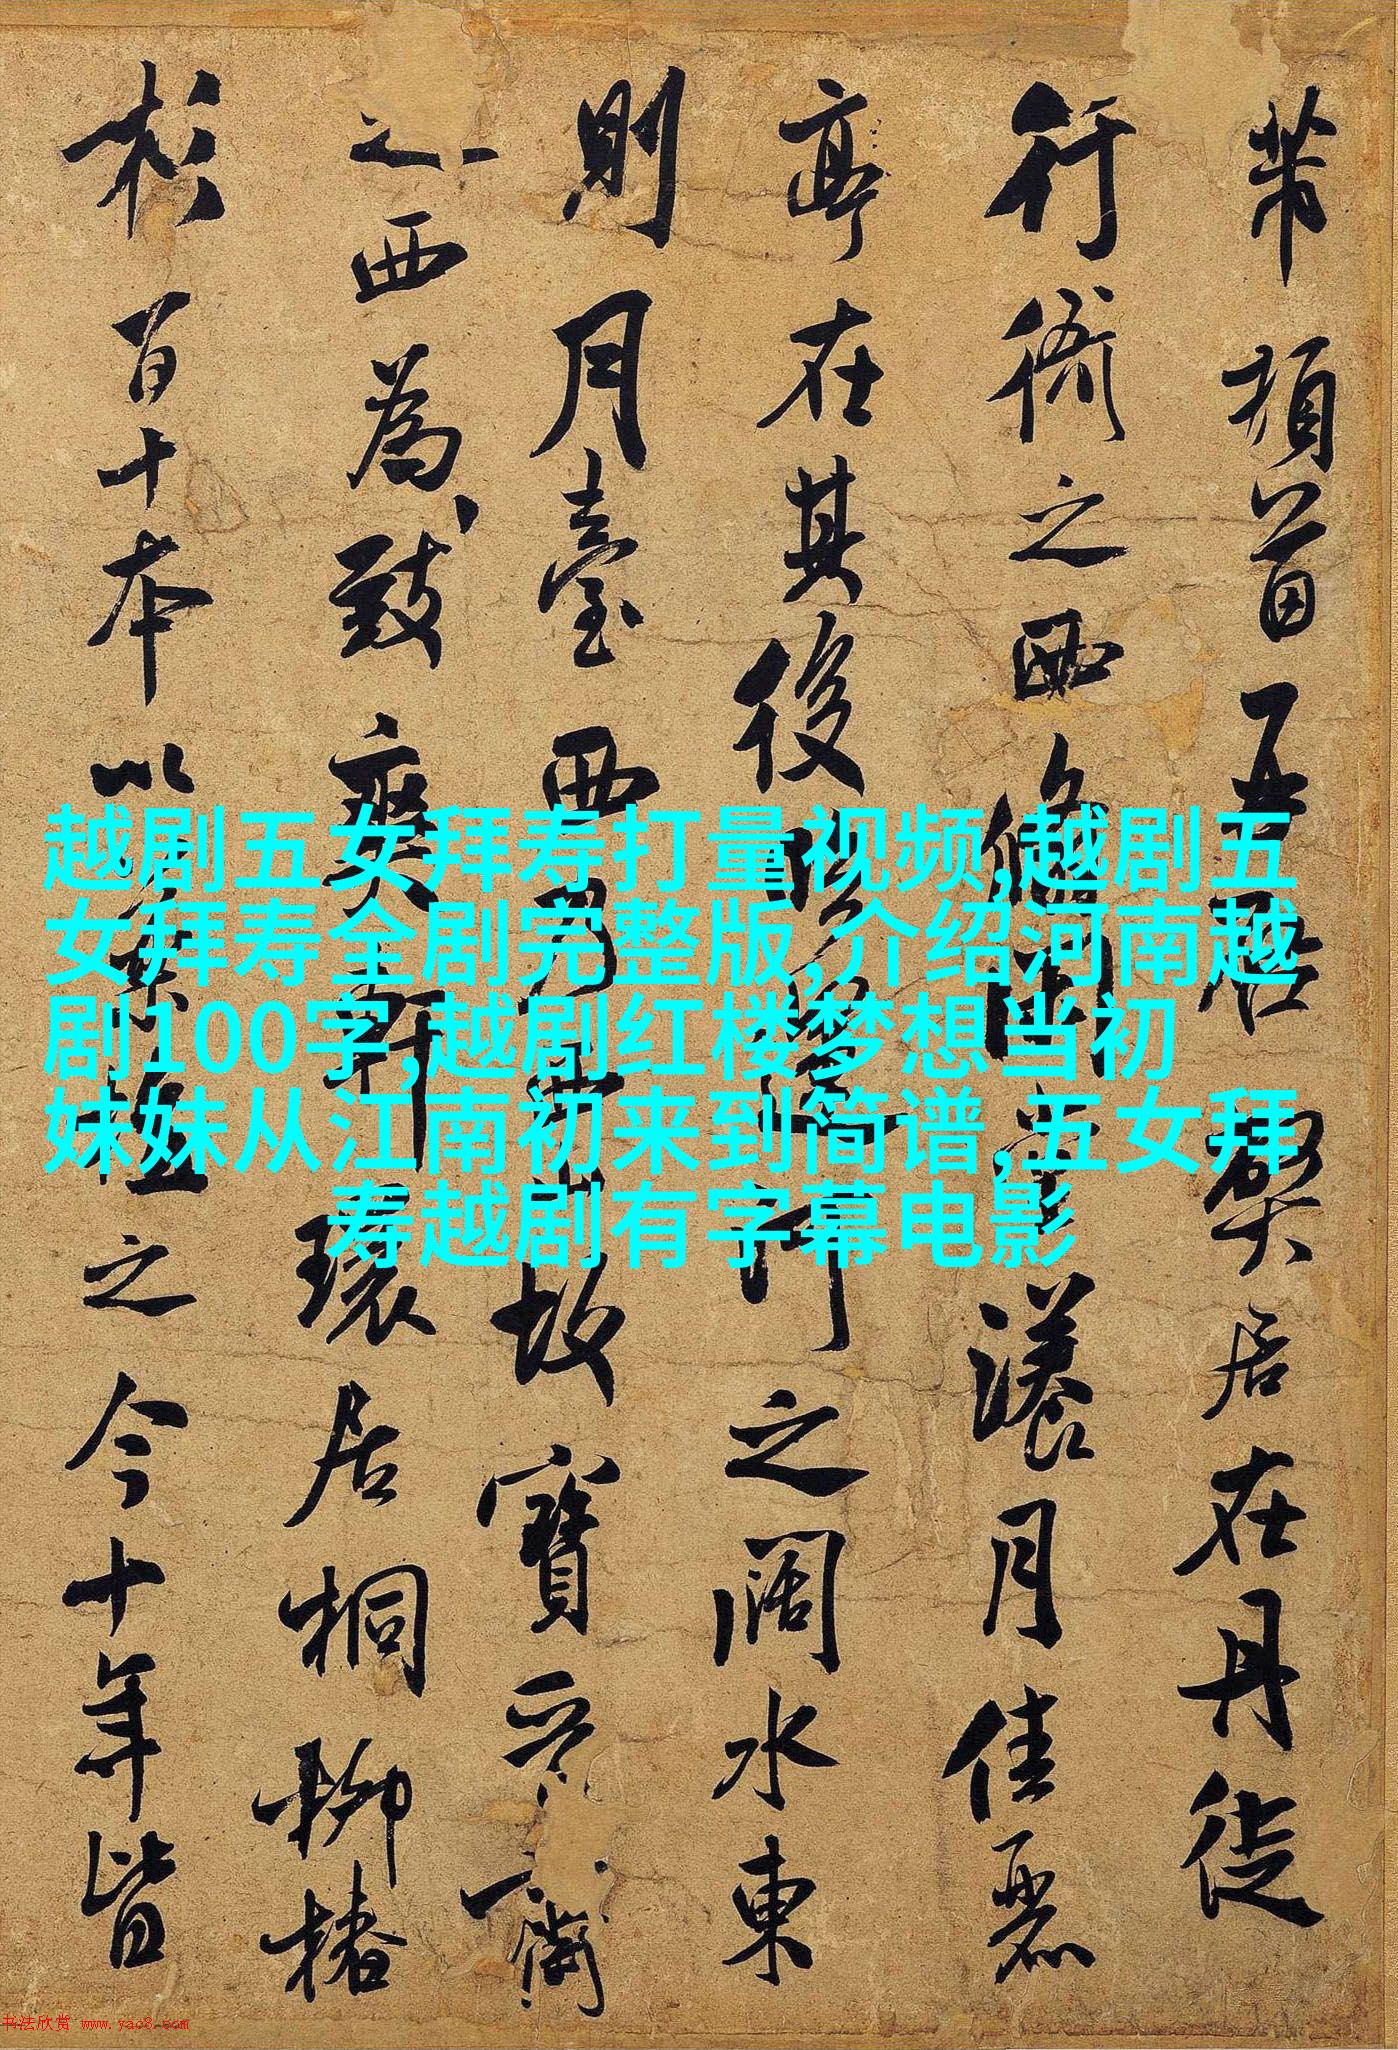 芾頓首再啟弊居在丹徒
行衙之西翛閑堂漾月佳麗
亭在其後臨運河之闊水東
則月臺西乃西山故寶晉齋
之西為致爽軒環居桐柳椿
杉百十本以藥植之今十年皆
越剧五女拜寿打量视频,越剧五
女拜寿全剧完整版,介绍河南越
剧100字,越剧红楼梦想当初
妹妹从江南初来到简谱,五女拜
寿越剧有字幕电影
书法欣赏 www.yac8.com